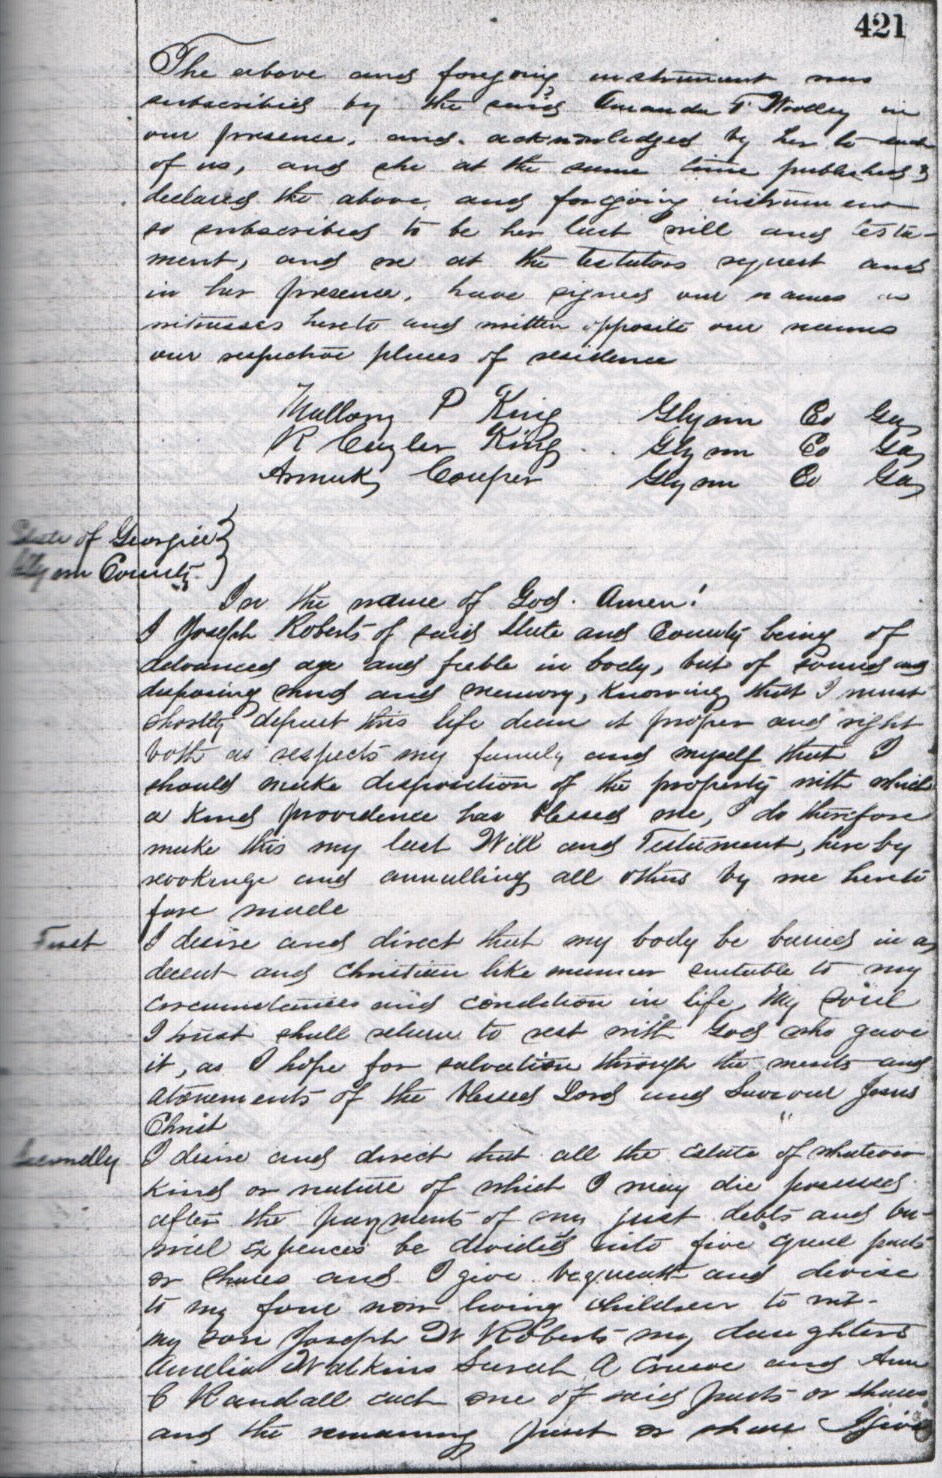 421
The above and foregoing instrument was
subscribed by the said Amanda T Woolley in
our presence, and acknowledged by her to each
of us, and she at the same time published &
declared the above and forgoing instrument
so subscribed to be her last will and testa-
ment, and we at the testators request and
in her presence, have signed our names as
witnesses hereto and written opposite our names
our respective places of residence
Mallory P King Glynn Co Ga
R Cuyler King Glynn Co Ga
Couper Glynn Co Ga
State of Georgia }
Glynn County }
In the name of God. Amen!
I Joseph Roberts of said State and County being of
advanced age and feeble in body, but of sound and
disposing mind and memory, knowing that I must
shortly depart this life deem it proper and right
both as respects my family and myself that I
should make disposition of the property with which
a kind providence has blessed me, I do therefore
make this my last Will and Testament, hereby
revokinge and annulling all others by me hereto
fore made
First I desire and direct that my body be buried in a
decent and christian like manner suitable to my
circumstances and condition in life, My Soul
I trust shall return to rest with God who gave
it, as I hope for salvation through the merits and
atonements of the blessed Lord and Saviour Jesus
Christ
Secondly I desire and direct that all the Estate of whatever
kind or nature of which I may die possessed
after the payments of my just debts and bu-
rial Expences be divided into five equal parts
or shares and I give bequeath and devise
to my four now living children to wit-
my son Joseph W Roberts my daughters
Aurelia Watkins Sarah A and Ann
C Randall each one of said parts or shares
and the remaining part or share I give